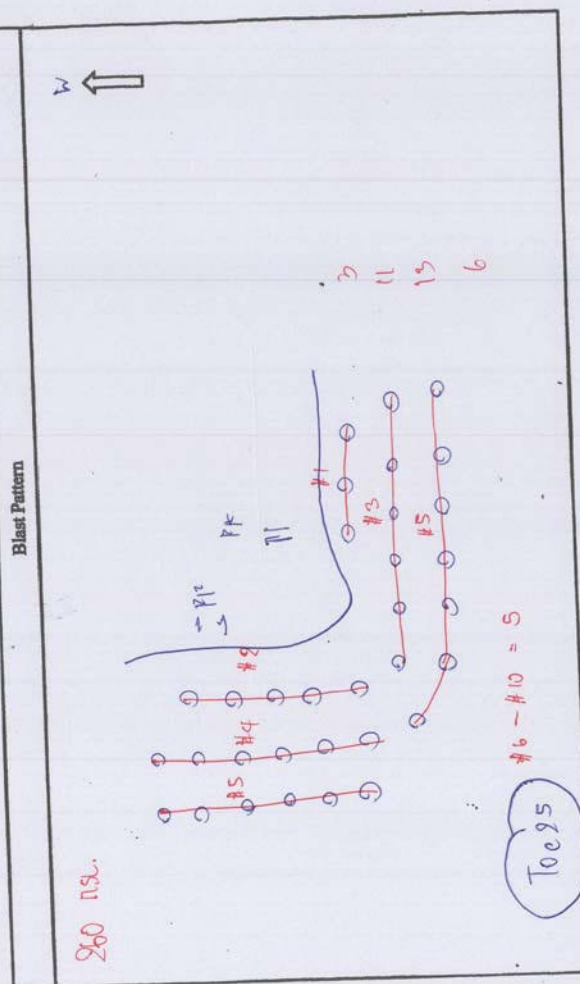 Blast Pattern
N
260 กก.
#2
#4
#5
#1
#3
#5
3
11
13
6
#6 - #10 = 5
Toe 25